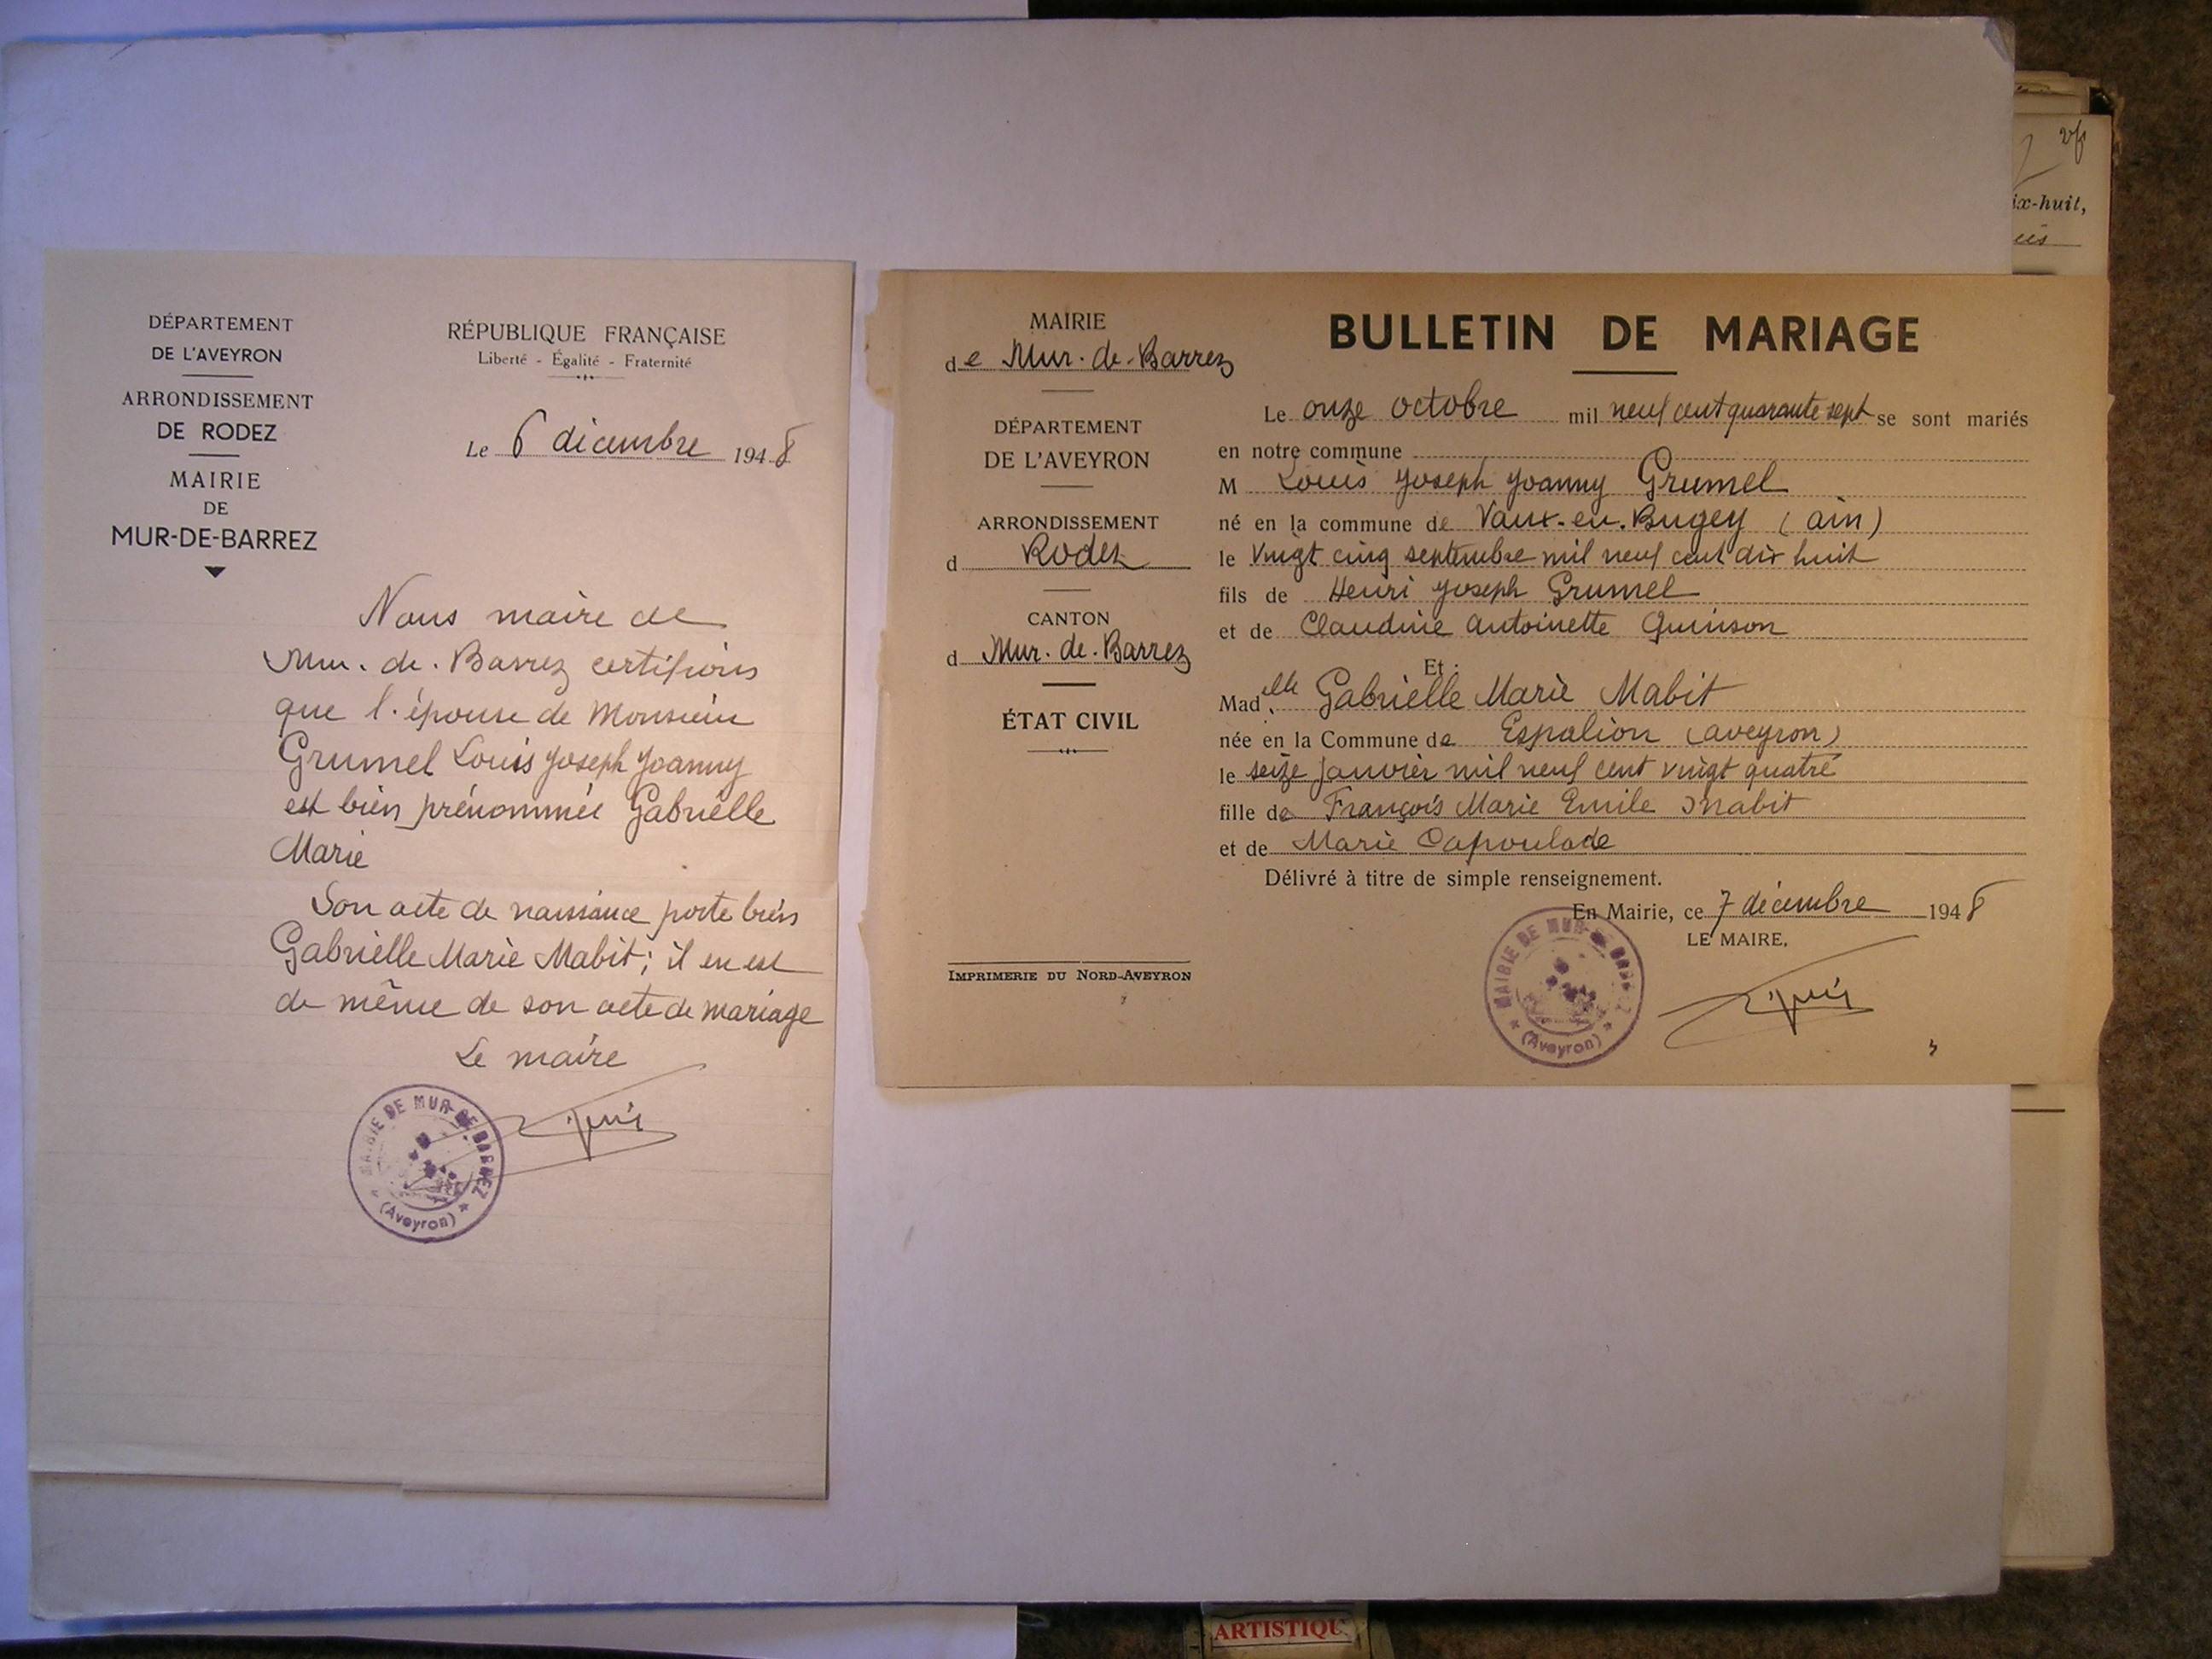 DÉPARTEMENT
DE L'AVEYRON
ARRONDISSEMENT
DE RODEZ
MAIRIE
DE
MUR-DE-BARREZ
RÉPUBLIQUE FRANÇAISE
Liberté - Égalité - Fraternité
Le 6 décembre 1948
Nous maire de
Mur-de-Barrez certifions
que l'épouse de Monsieur
Grumel Louis Joseph Joanny
est bien prénommée Gabrielle
Marie
Son acte de naissance porte bien
Gabrielle Marie Mabit; il en est
de même de son acte de mariage
Le maire
MAIRIE DE MUR-DE-BARREZ
(Aveyron)
MAIRIE
de Mur-de-Barrez
DÉPARTEMENT
DE L'AVEYRON
ARRONDISSEMENT
d Rodez
CANTON
d Mur-de-Barrez
ÉTAT CIVIL
IMPRIMERIE DU NORD-AVEYRON
BULLETIN DE MARIAGE
Le onze octobre mil neuf cent quarante sept se sont mariés
en notre commune
M Louis Joseph Joanny Grumel
né en la commune de Vaux-en-Bugey (ain)
le vingt cinq septembre mil neuf cent dix huit
fils de Henri Joseph Grumel
et de Claudine Antoinette Quinson
Et :
Madelle Gabrielle Marie Mabit
née en la Commune de Espalion (aveyron)
le seize janvier mil neuf cent vingt quatre
fille de François Marie Emile Mabit
et de Marie Capoulade
Délivré à titre de simple renseignement.
En Mairie, ce 7 décembre 1948
LE MAIRE,
MAIRIE DE MUR-DE-BARREZ
(Aveyron)
ix-huit,
ARTISTIQU